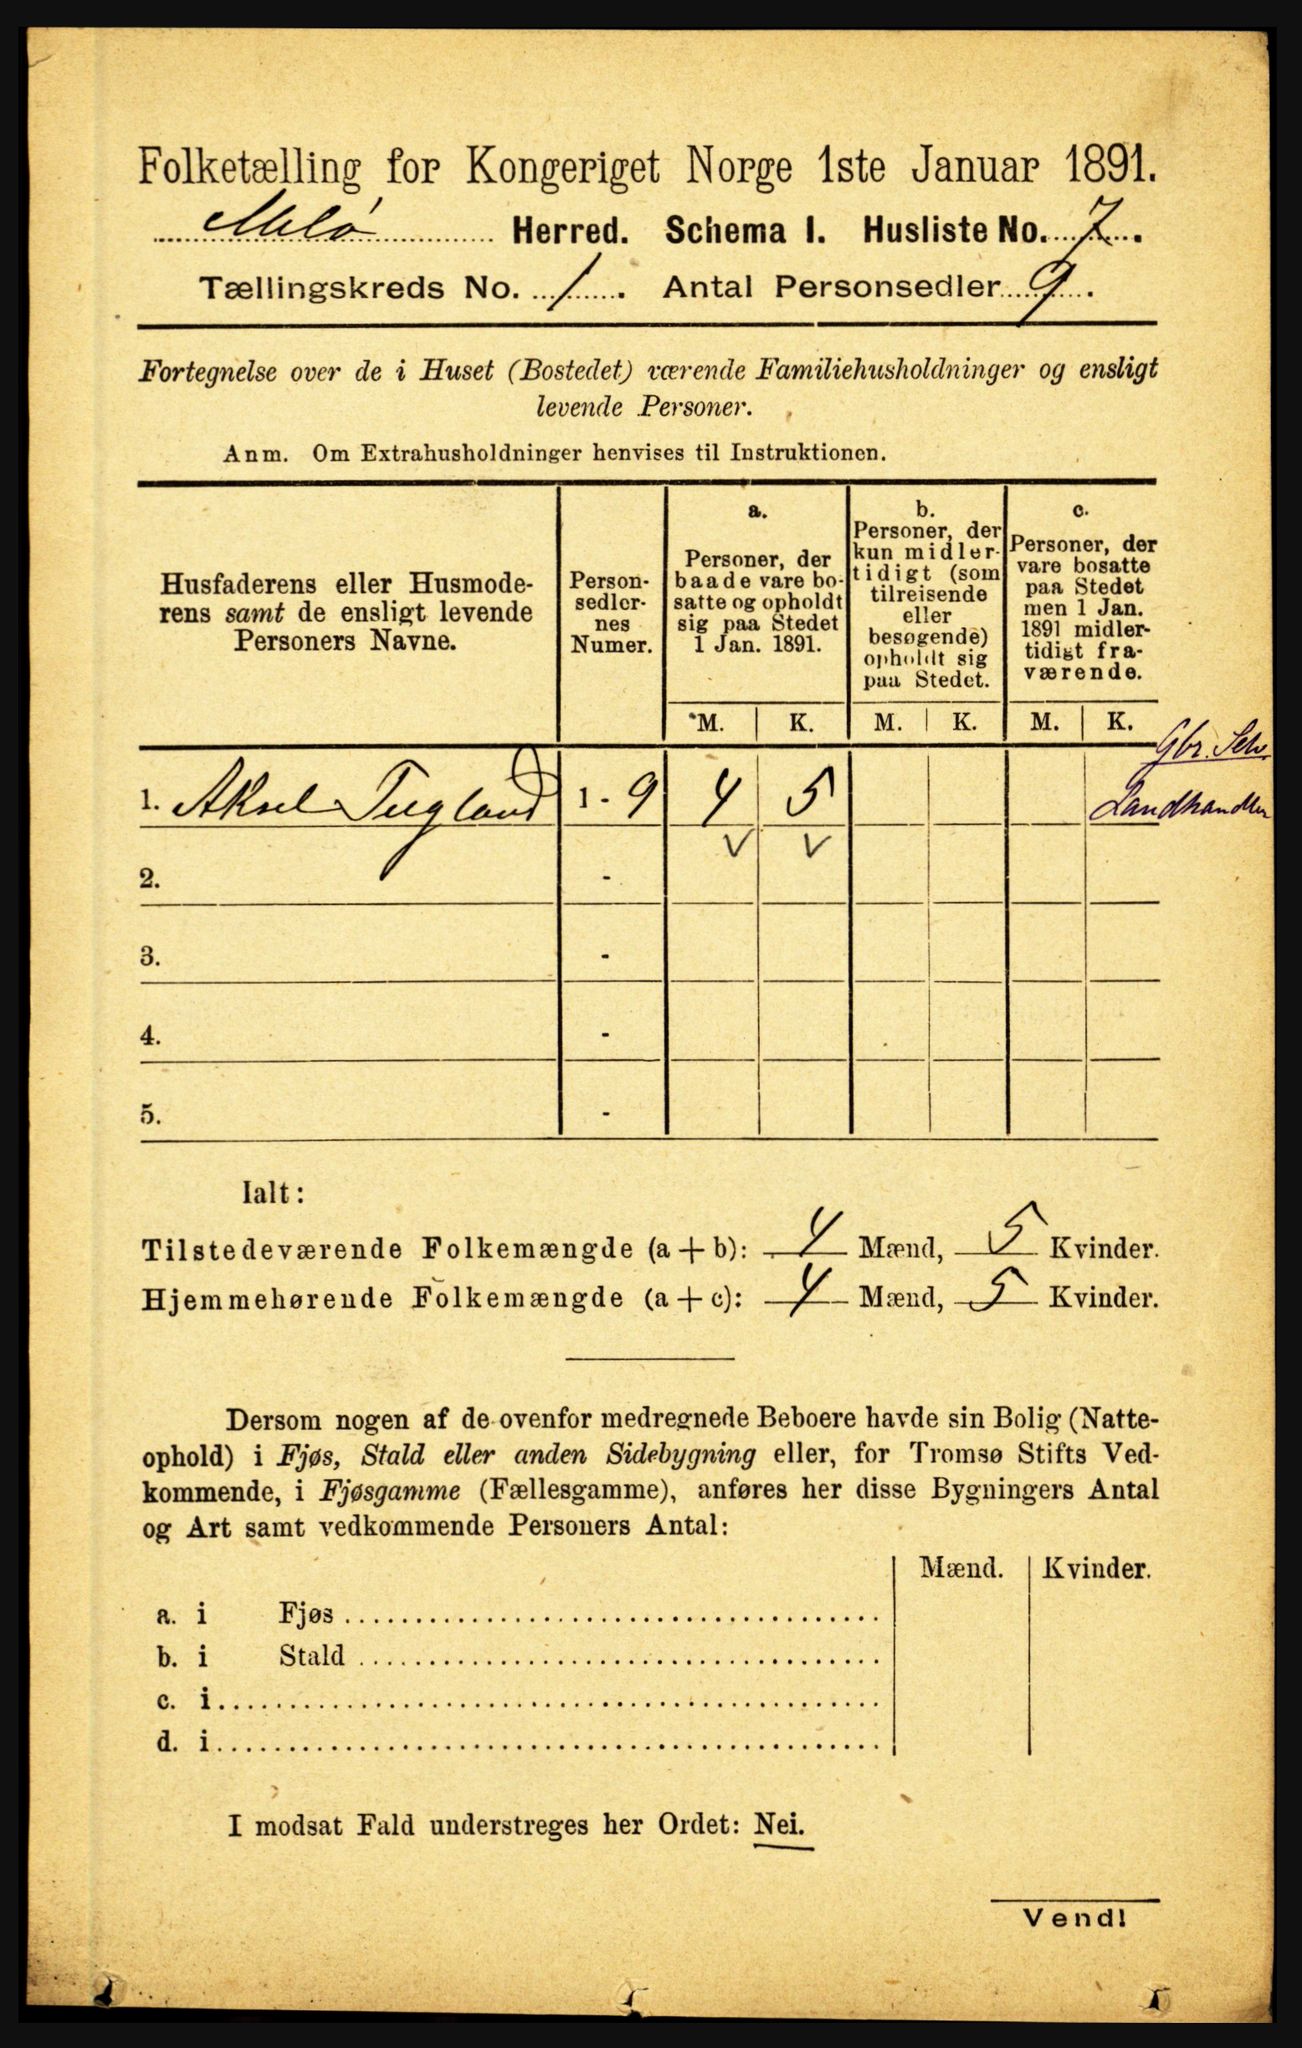 Folketælling for Kongeriget Norge 1ste Januar 1891.
Melø Herred. Schema I. Husliste No. 7.
Tællingskreds No. 1. Antal Personsedler 9.
Fortegnelse over de i Huset (Bostedet) værende Familiehusholdninger og ensligt
levende Personer.
Anm. Om Extrahusholdninger henvises til Instruktionen.
Husfaderens eller Husmode-
rens samt de ensligt levende
Personers Navne.
Person-
sedler-
nes
Numer.
a.
Personer, der
baade vare bo-
satte og opholdt
sig paa Stedet
1 Jan. 1891.
b.
Personer, der
kun midler-
tidigt (som
tilreisende
eller
besøgende)
opholdt sig
paa Stedet.
c.
Personer, der
vare bosatte
paa Stedet
men 1 Jan.
1891 midler-
tidigt fra-
værende.
M. K. M. K. M. K.
Gbr. Selv.
1. Aksel Tugland 1 - 9 4 5 Landhandler
2. - v v
3. -
4. -
5. -
Ialt:
Tilstedeværende Folkemængde (a + b): 4 Mænd, 5 Kvinder.
Hjemmehørende Folkemængde (a + c): 4 Mænd, 5 Kvinder.
Dersom nogen af de ovenfor medregnede Beboere havde sin Bolig (Natte-
ophold) i Fjøs, Stald eller anden Sidebygning eller, for Tromsø Stifts Ved-
kommende, i Fjøsgamme (Fællesgamme), anføres her disse Bygningers Antal
og Art samt vedkommende Personers Antal:
Mænd. Kvinder.
a. i Fjøs
b. i Stald
c. i
d. i
I modsat Fald understreges her Ordet: Nei.
Vend!